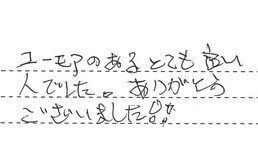 ユーモアのあるとても良い
人でした。ありがとう
ございました!!